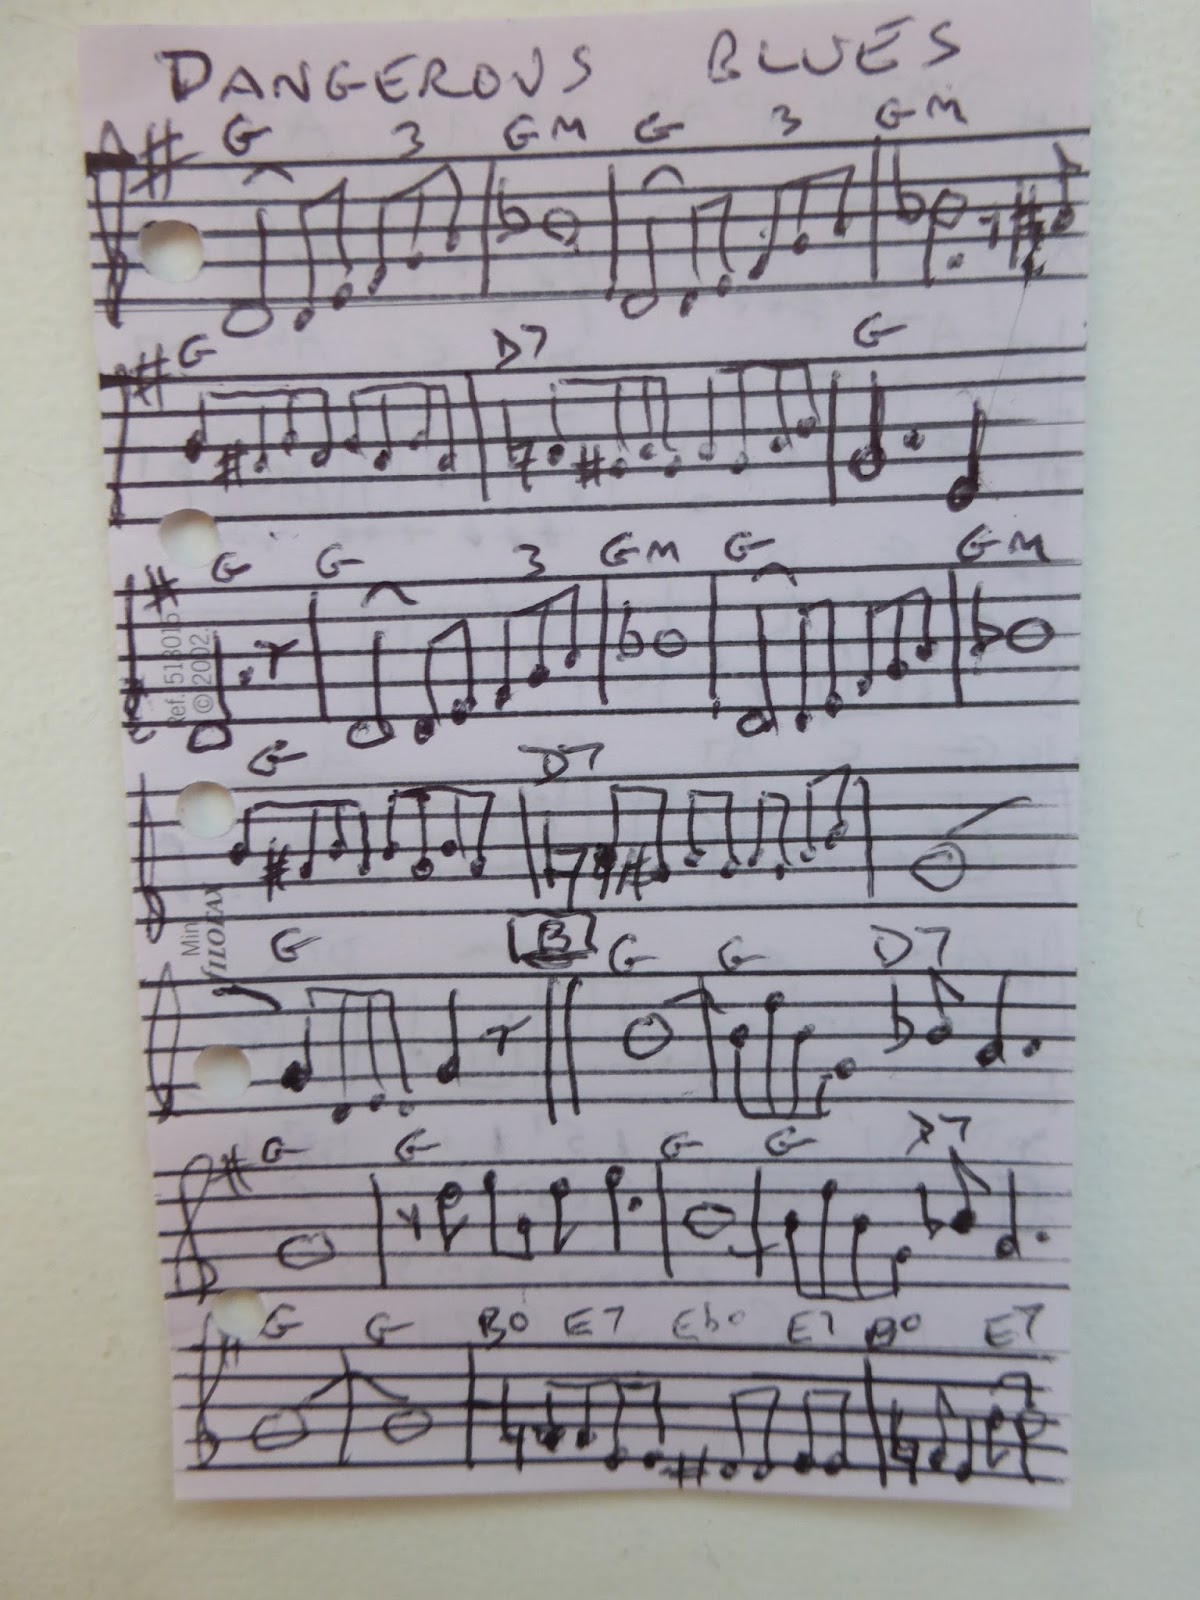 DANGEROUS BLUES
G 3 GM G 3 GM
G D7 G
G G 3 GM G GM
Ref. 513015
© 2002.
G D7
Min
FILOFAX
G B G G D7
G G G G D7
G G B° E7 Eb° E7 B° E7